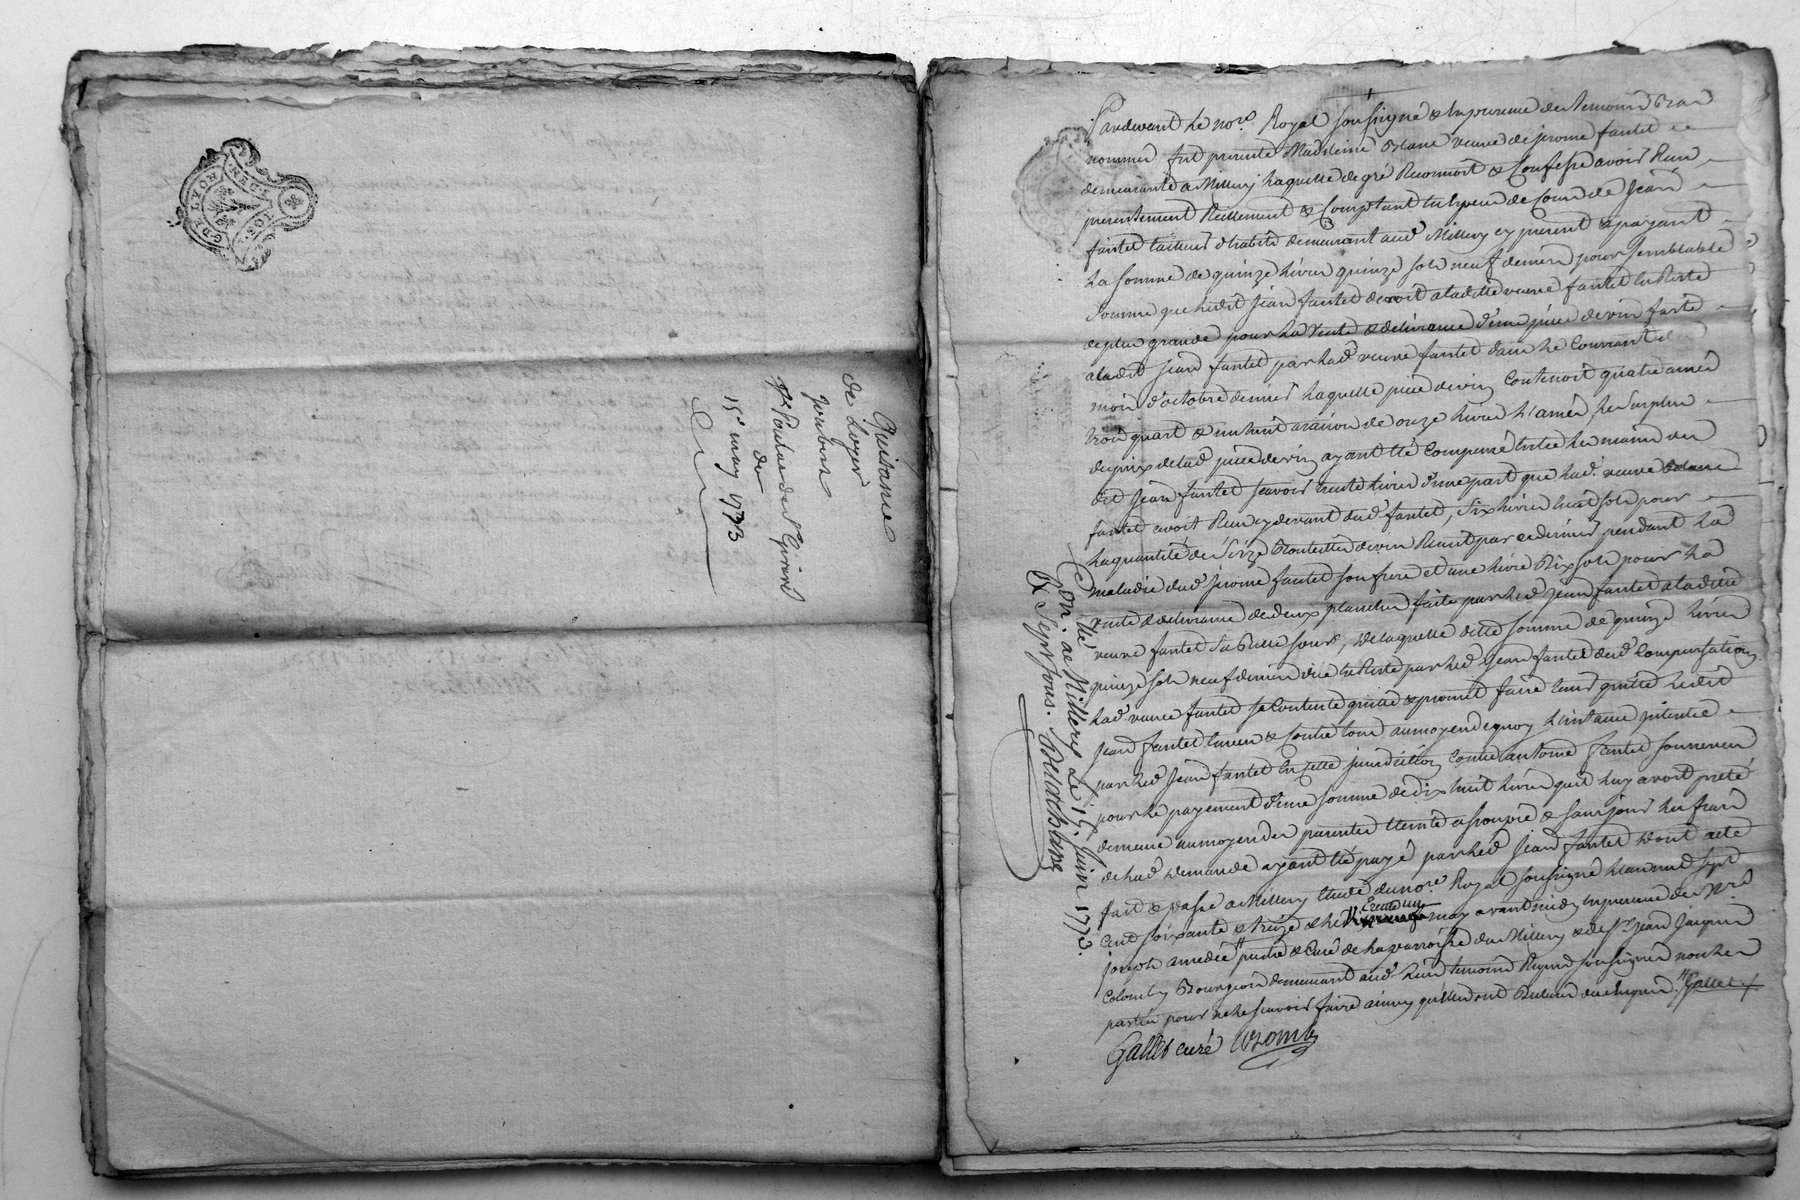 GEN. DE LYON
Quittance
de Loyer
Joubert
du
15e may 1773
Pardevant Le nore. Royal soussigné & En presence des temoins Bas
nommés fut presente Madeleine Blanc veuve de jerome fantet
demeurante a Millery Laquelle de gré Reconnoit & Confesse avoir Reçu
presentement Reellement & Comptant En Espece de Cours de Jean
fantet tailleur d'habits demeurant aud. Millery cy present & payant
La somme de quinze Livres quinze sols neuf deniers pour semblable
somme que Ledit Jean fantet devoit a laditte veuve fantet En Reste
de plus grande pour La vente & delivrance d'une piece de vin faite
audit Jean fantet par Lad. veuve fantet dans Le Courrant d
mois d'octobre dernier Laquelle piece de vin Contenoit quatre anées
trois quart & un huit a raison de onze Livres L'anée, Le surplus
du prix de lad. piece de vin ayant été Compensé Entre Les mains du
dit Jean fantet scavoir trente Livres d'une part que Lad. veuve
fantet avoit Reçu cy devant dud. fantet, six Livres huit sols pour
La quantité de seize Bouteilles de vin Reçuës par ce dernier pendant La
maladie dud. jerome fantet son frere et une Livre Dix sols pour La
vente & delivrance de deux planches faite par Led. Jean fantet a laditte
veuve fantet sa Belle soeur, De laquelle ditte somme de quinze Livres
quinze sols neuf deniers Düe En Reste par Led. Jean fantet Lad. Compensation
Lad. veuve fantet se Contente quitte & promet faire tenir quitte Ledit
Jean fantet Envers & Contre tous au moyen de quoy L'instance intentée
par Led. Jean fantet En cette jurisdiction Contre antoine fantet son neveu
pour Le payement d'une somme de dix huit Livres qu'il Luy avoit preté
demeure au moyen des presentes Eteinte assoupie & sans jour Les frais
de Lad. Demande ayant été payé par Led. Jean fantet Dont acte
fait & passé a Millery Etude du nore. Royal soussigné L'an mil sept
cent soixante & treize & Le Trente un may avant midy En presence de Mre
joseph amedée prêtre & Curé de La parroisse dud. Millery & de Sr. Jean Jacques
Colomb Bourgeois demeurant aud. Lieu temoins Requis soussignés non Les
parties pour ne Le scavoir faire ainsy qu'elles ont Declaré de ce Enquis. Gallet
Gallet curé Colomb
Con. lé. ae Millery Le 15. Juin 1773.
R. Sept sous.